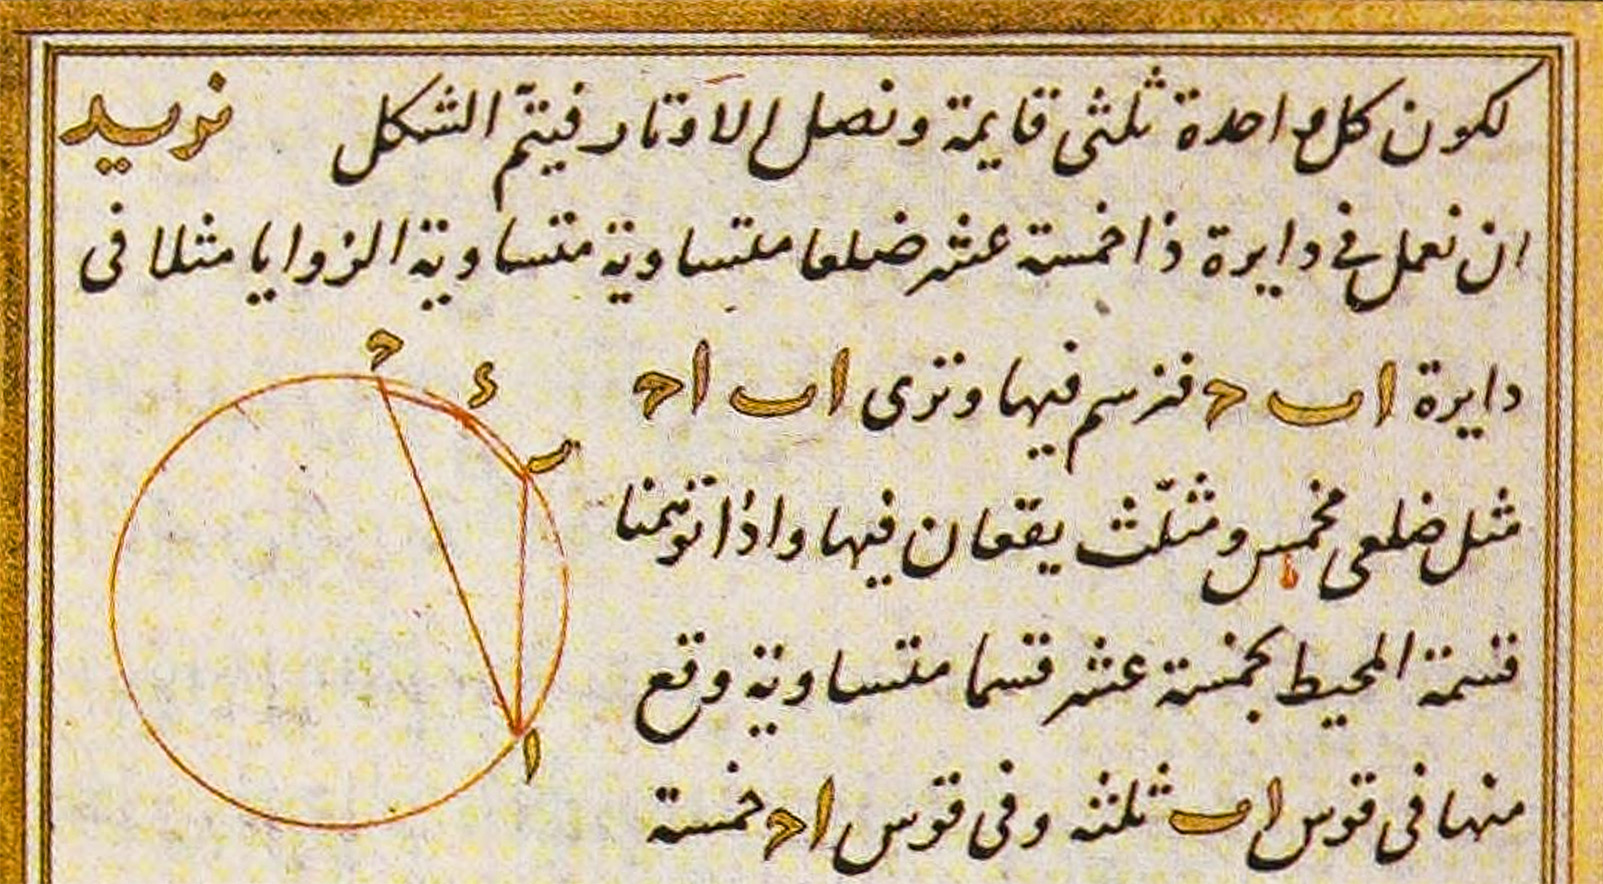 لكون كل واحدة ثلثى قايمة ونصل الاوتار فيتم الشكل نريد
ان نعمل في دايرة ذا خمسة عشر ضلعا متساوية متساوية الزوايا مثلا في
دايرة ا ب ح فنرسم فيها وترى ا ب ا ح
مثل ضلعى مخمس ومثلّث يقعان فيها واذا توهمنا
قسمة المحيط بخمسة عشر قسما متساوية وقع
منها فى قوس ا ب ثلثة وفى قوس ا ح خمسة
ح
د
ب
ا